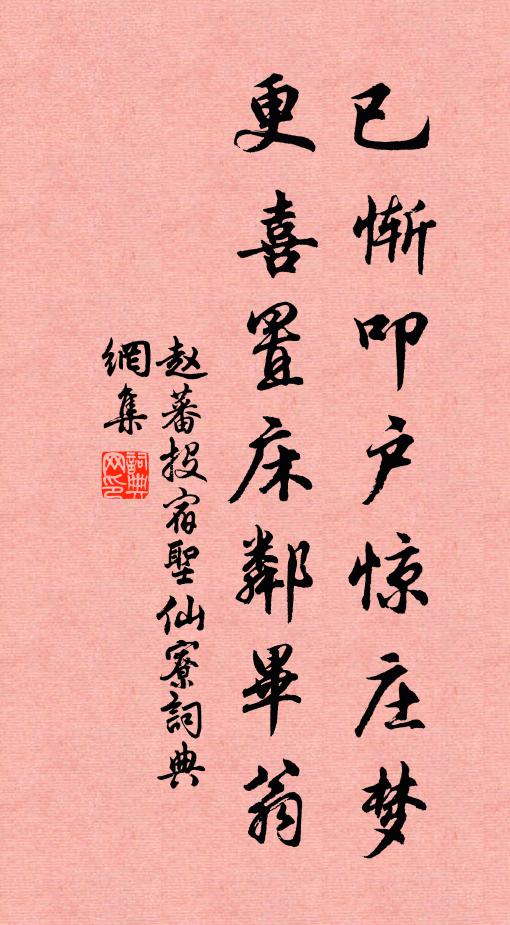 已惭叩户惊庄梦
更喜置床鄰畢翁
赵蕃投宿聖仙寮詞典
網集
詞典網印